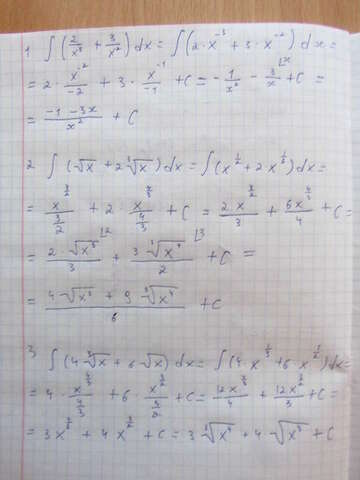 1 ∫ (2/x³ + 3/x²) dx = ∫ (2 · x⁻³ + 3 · x⁻²) dx =
= 2 · x⁻²/-2 + 3 · x⁻¹/-1 + C = - 1/x² - 3/x + C =
= (-1 - 3x)/x² + C
2 ∫ (√x + 2 ³√x) dx = ∫ (x^(1/2) + 2 x^(1/3)) dx =
= x^(3/2)/(3/2) + 2 · x^(4/3)/(4/3) + C = 2x^(3/2)/3 + 6x^(4/3)/4 + C =
= 2√x³/3 + 3 ³√x⁴/2 + C =
= (4√x³ + 9 ³√x⁴)/6 + C
3 ∫ (4 ³√x + 6 √x) dx = ∫ (4 · x^(1/3) + 6 x^(1/2)) dx =
= 4 · x^(4/3)/(4/3) + 6 · x^(3/2)/(3/2) + C = 12x^(4/3)/4 + 12x^(3/2)/3 + C =
= 3x^(4/3) + 4x^(3/2) + C = 3 ³√x⁴ + 4 √x³ + C